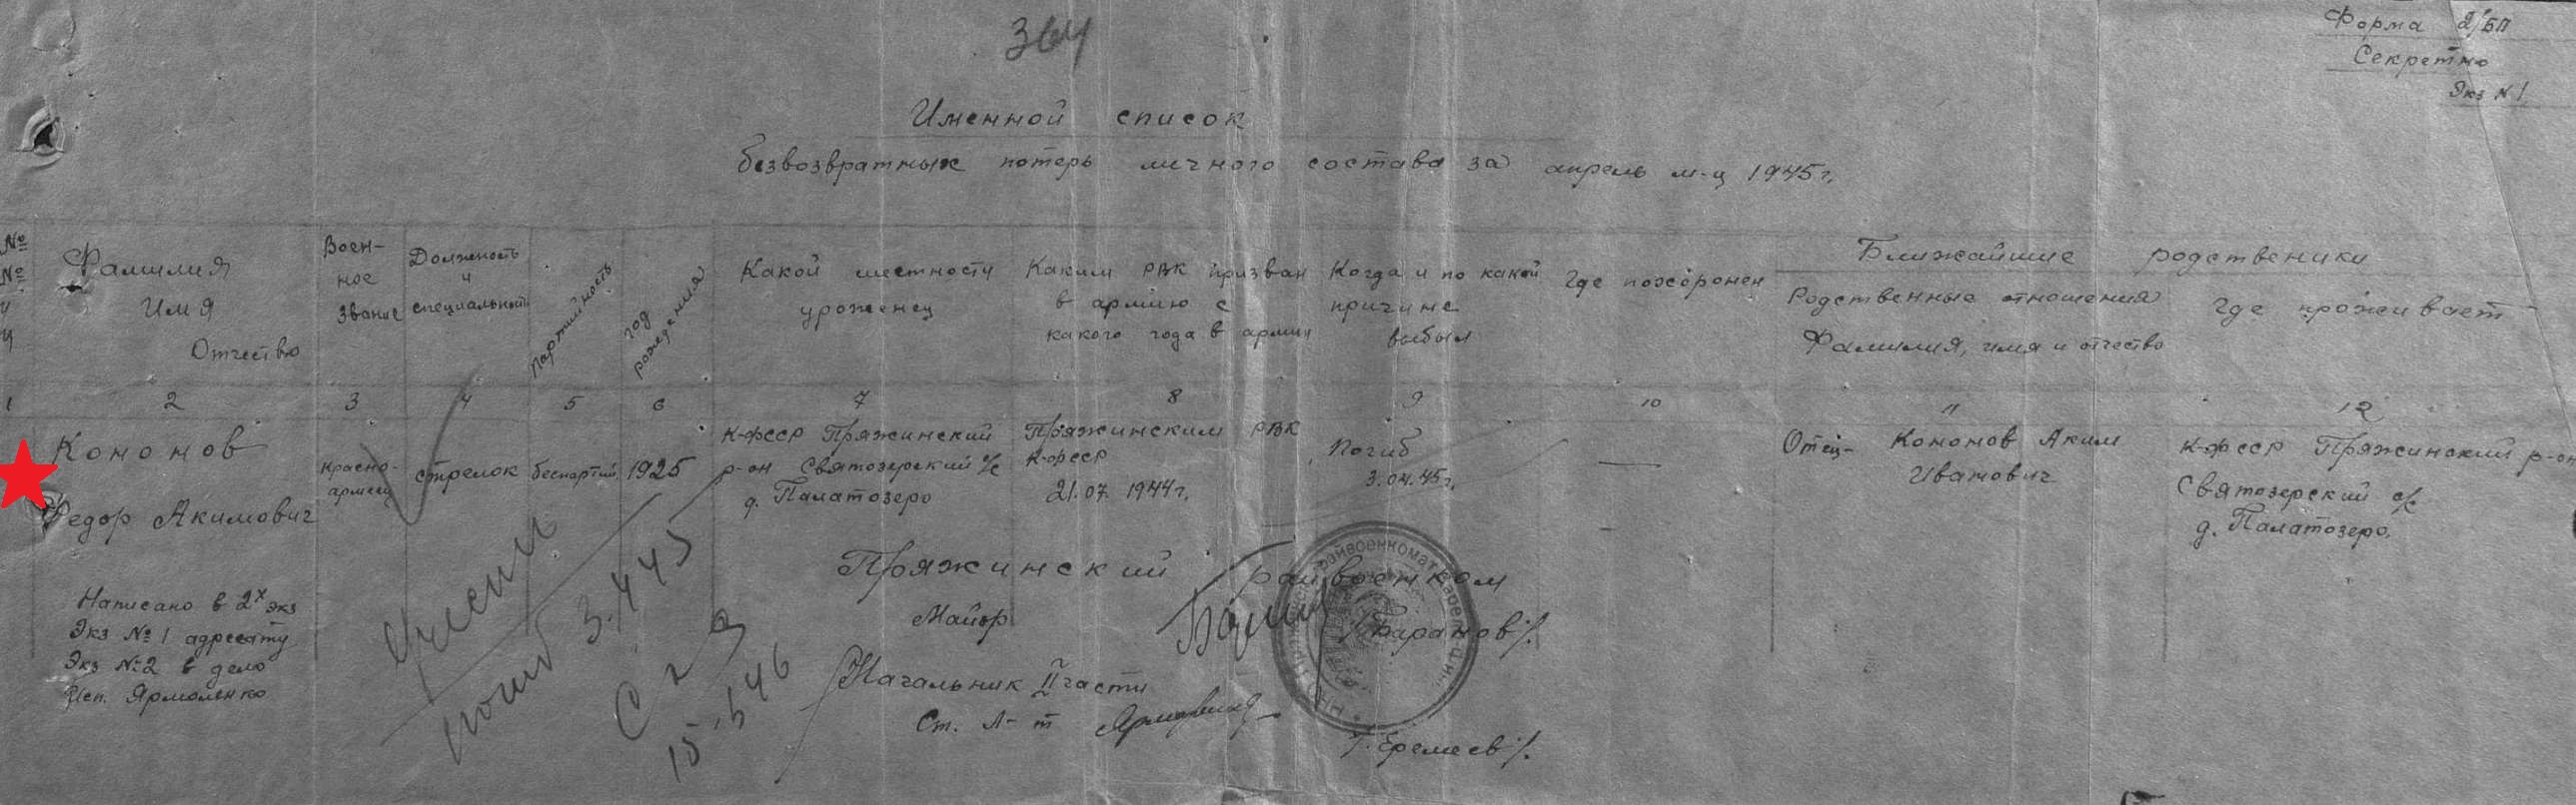 364
Форма 2/БП
Секретно
Экз №1
Именной список
безвозвратных потерь личного состава за апрель м-ц 1945г.
№№
Фамилия Имя Отчество
Воен-
ное
звание
Должность
и
специальность
Партийность
год
рождения
Какой местности
уроженец
Каким РВК призван
в армию с
какого года в армии
Когда и по какой
причине
выбыл
Где похоронен
Ближайшие родственики
Родственные отношения
Фамилия, имя и отчество
Где проживает
1 2 3 4 5 6 7 8 9 10 11 12
Кононов
Федор Акимович
Красно-
армеец
стрелок
беспартий.
1925
К-ФССР Пряжинский
р-он Святозерский с/с
д. Палатозеро
Пряжинским РВК
К-ФССР
21.07 1944г.
Погиб
3.04.45г.
—
Отец- Кононов Аким
Иванович
К-ФССР Пряжинский р-он
Святозерский с/с
д. Палатозеро.
Написано в 2х экз
Экз №1 адресату
Экз №2 в дело
Исп. Ярмоленко
погиб 3.4.45
Пряжинский райвоенком
Майор
/Баранов/.
Начальник II части
Ст. Л-т
/Еремеев/.